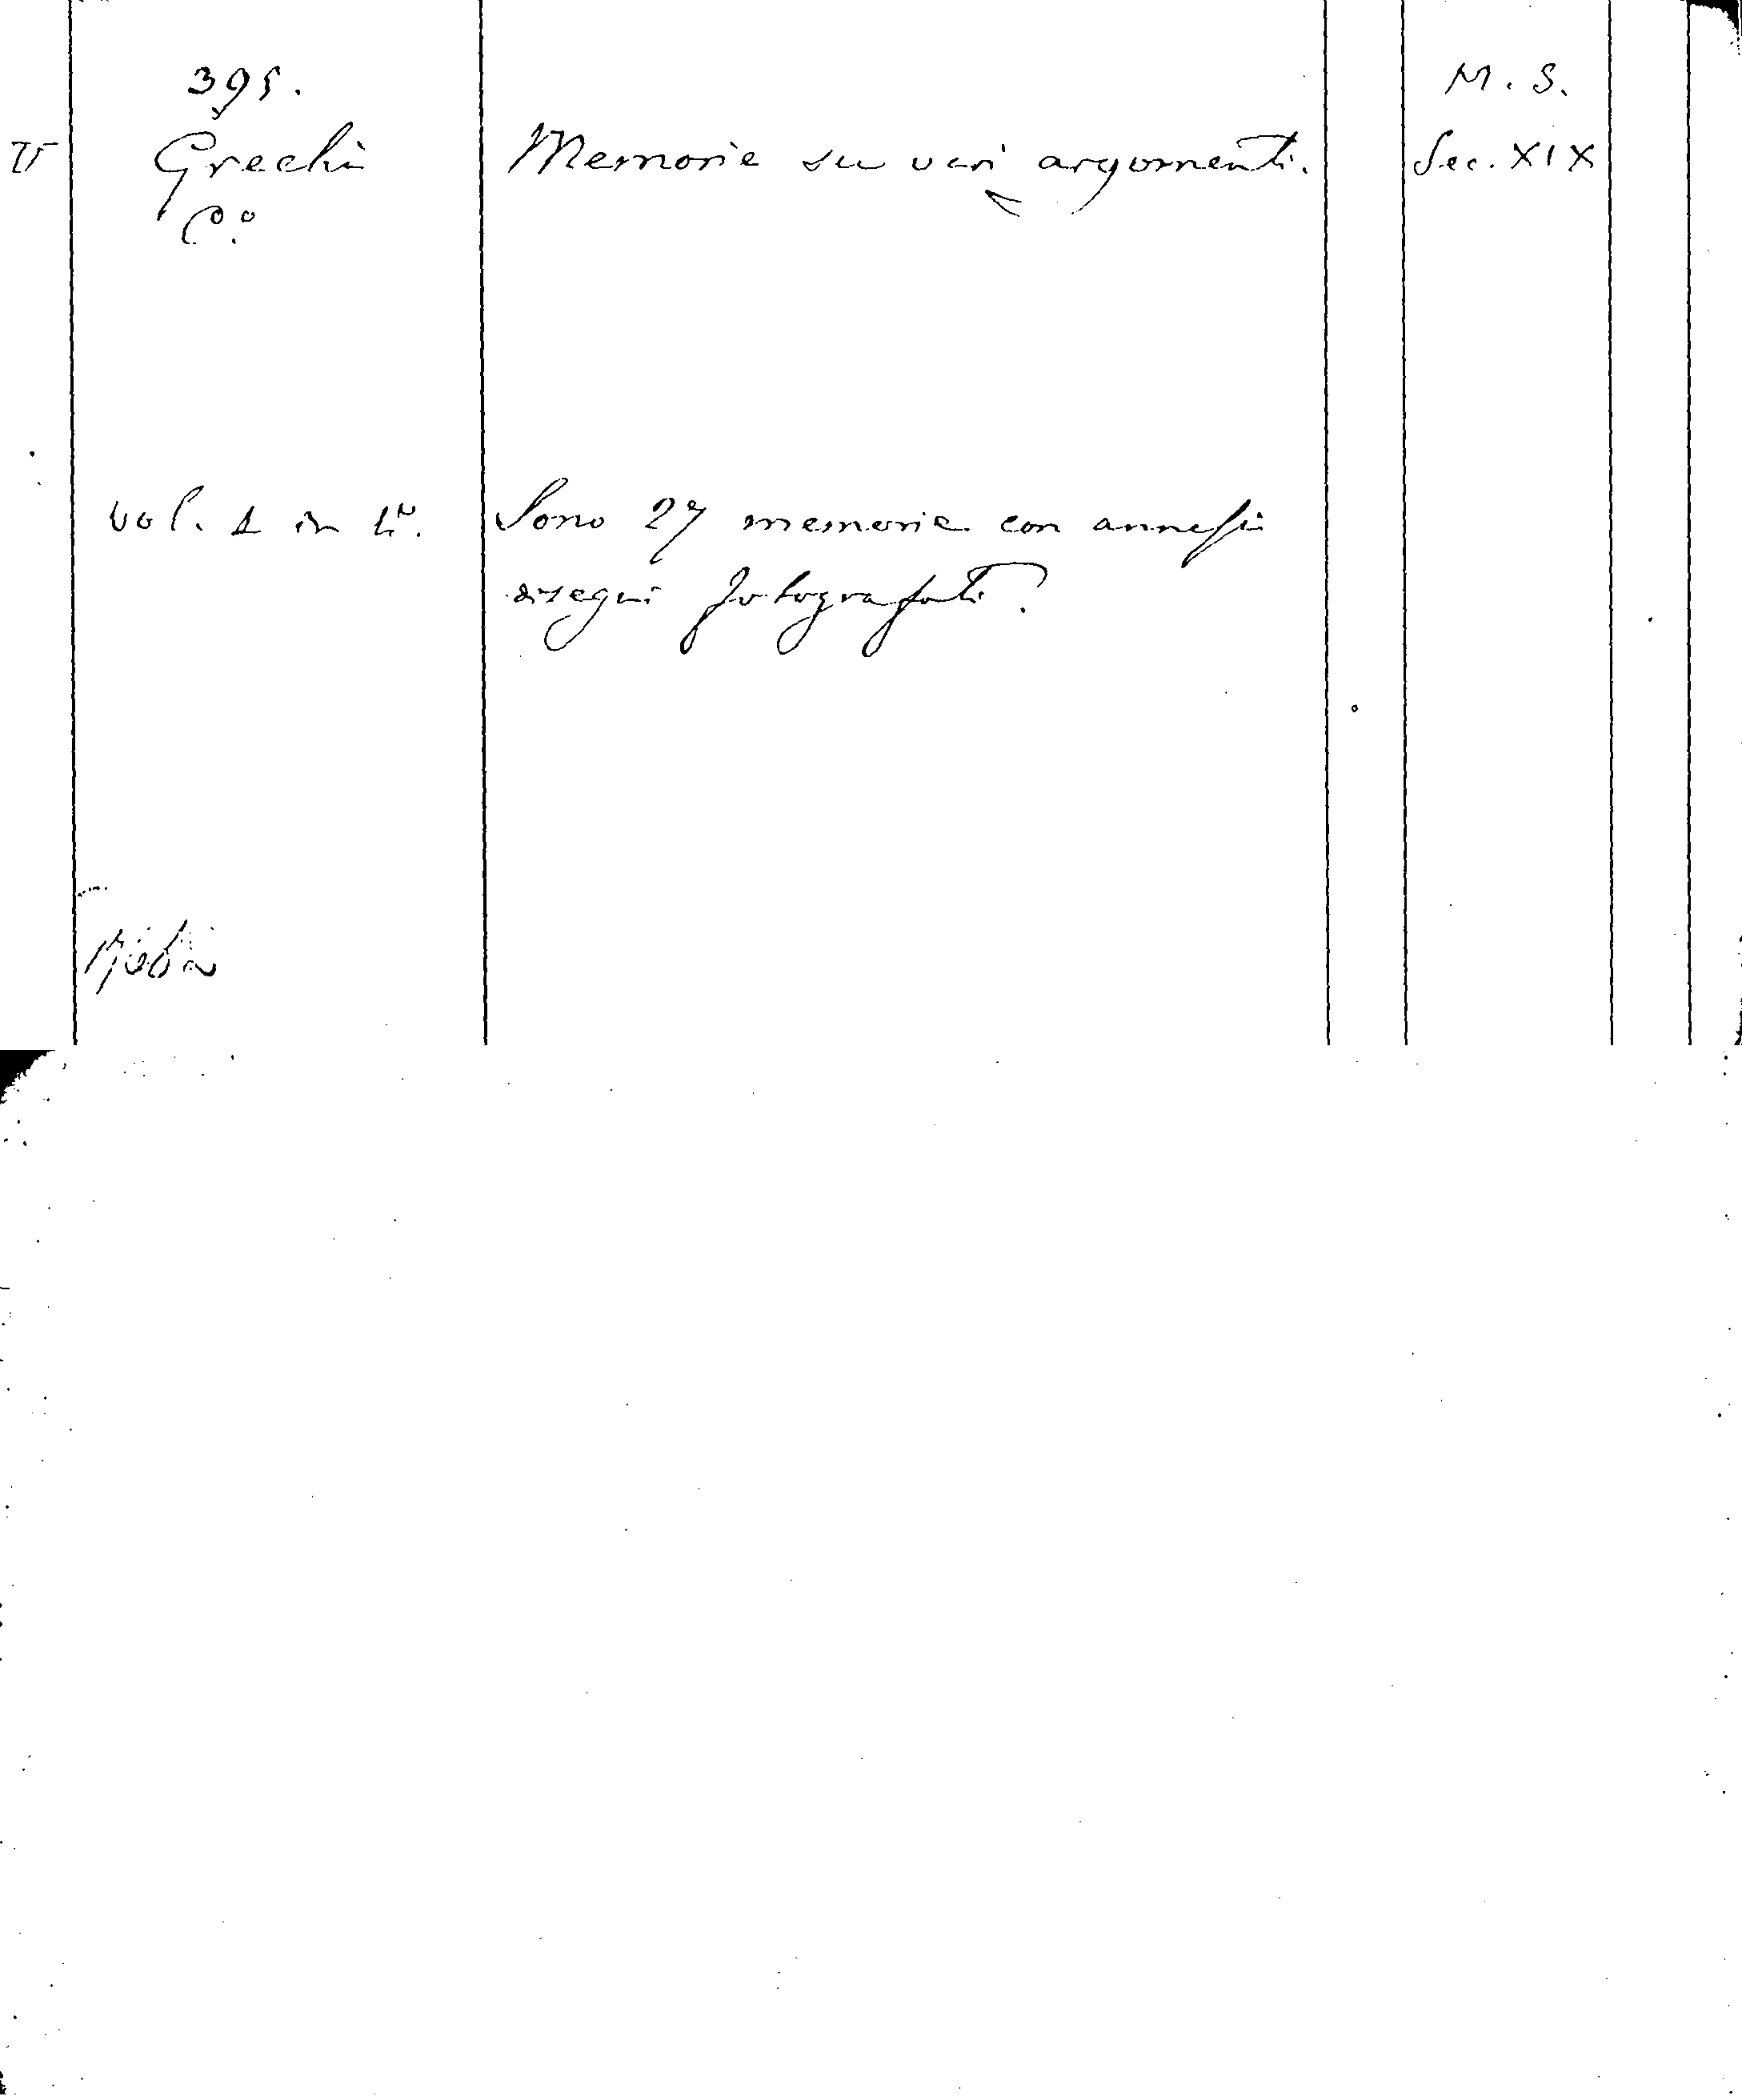 395.
M. S.
V Grechi
Memorie su vari argomenti.
Sec. XIX
C.º
vol. 1 in 4º.
Sono 27 memorie con annessi
disegni fotografati.